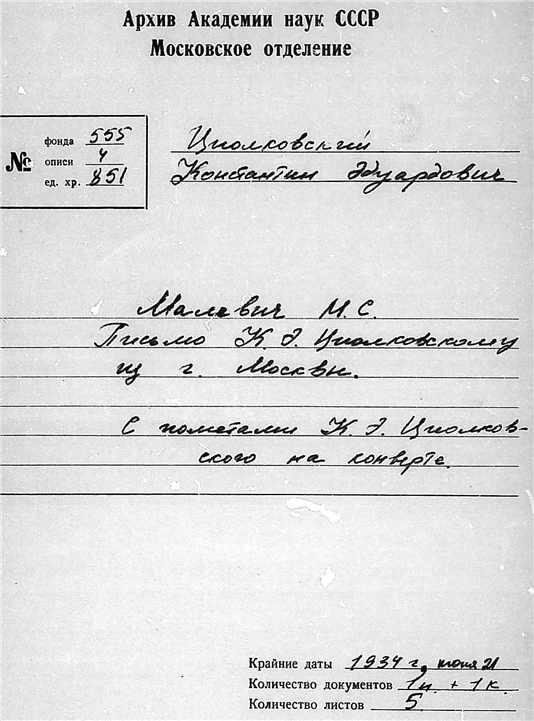 Архив Академии наук СССР
Московское отделение
№
фонда 555
описи 4
ед. хр. 851
Циолковский
Константин Эдуардович
Малевич М. С.
Письмо К. Э. Циолковскому
из г. Москвы.
С пометами К. Э. Циолков-
ского на конверте.
Крайние даты 1934 г. июня 21
Количество документов 1п. + 1к.
Количество листов 5